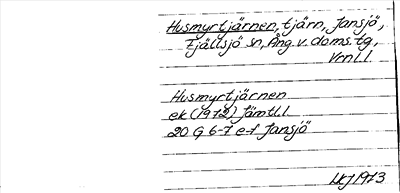 Husmyrtjärnen, tjärn, Jansjö,
Fjällsjö sn, Ång. v. doms. tg,
Vrnl.l.
Husmyrtjärnen
ek (1972) Jämtl.l
20 G 6-7 e-f Jansjö
LKJ 1973